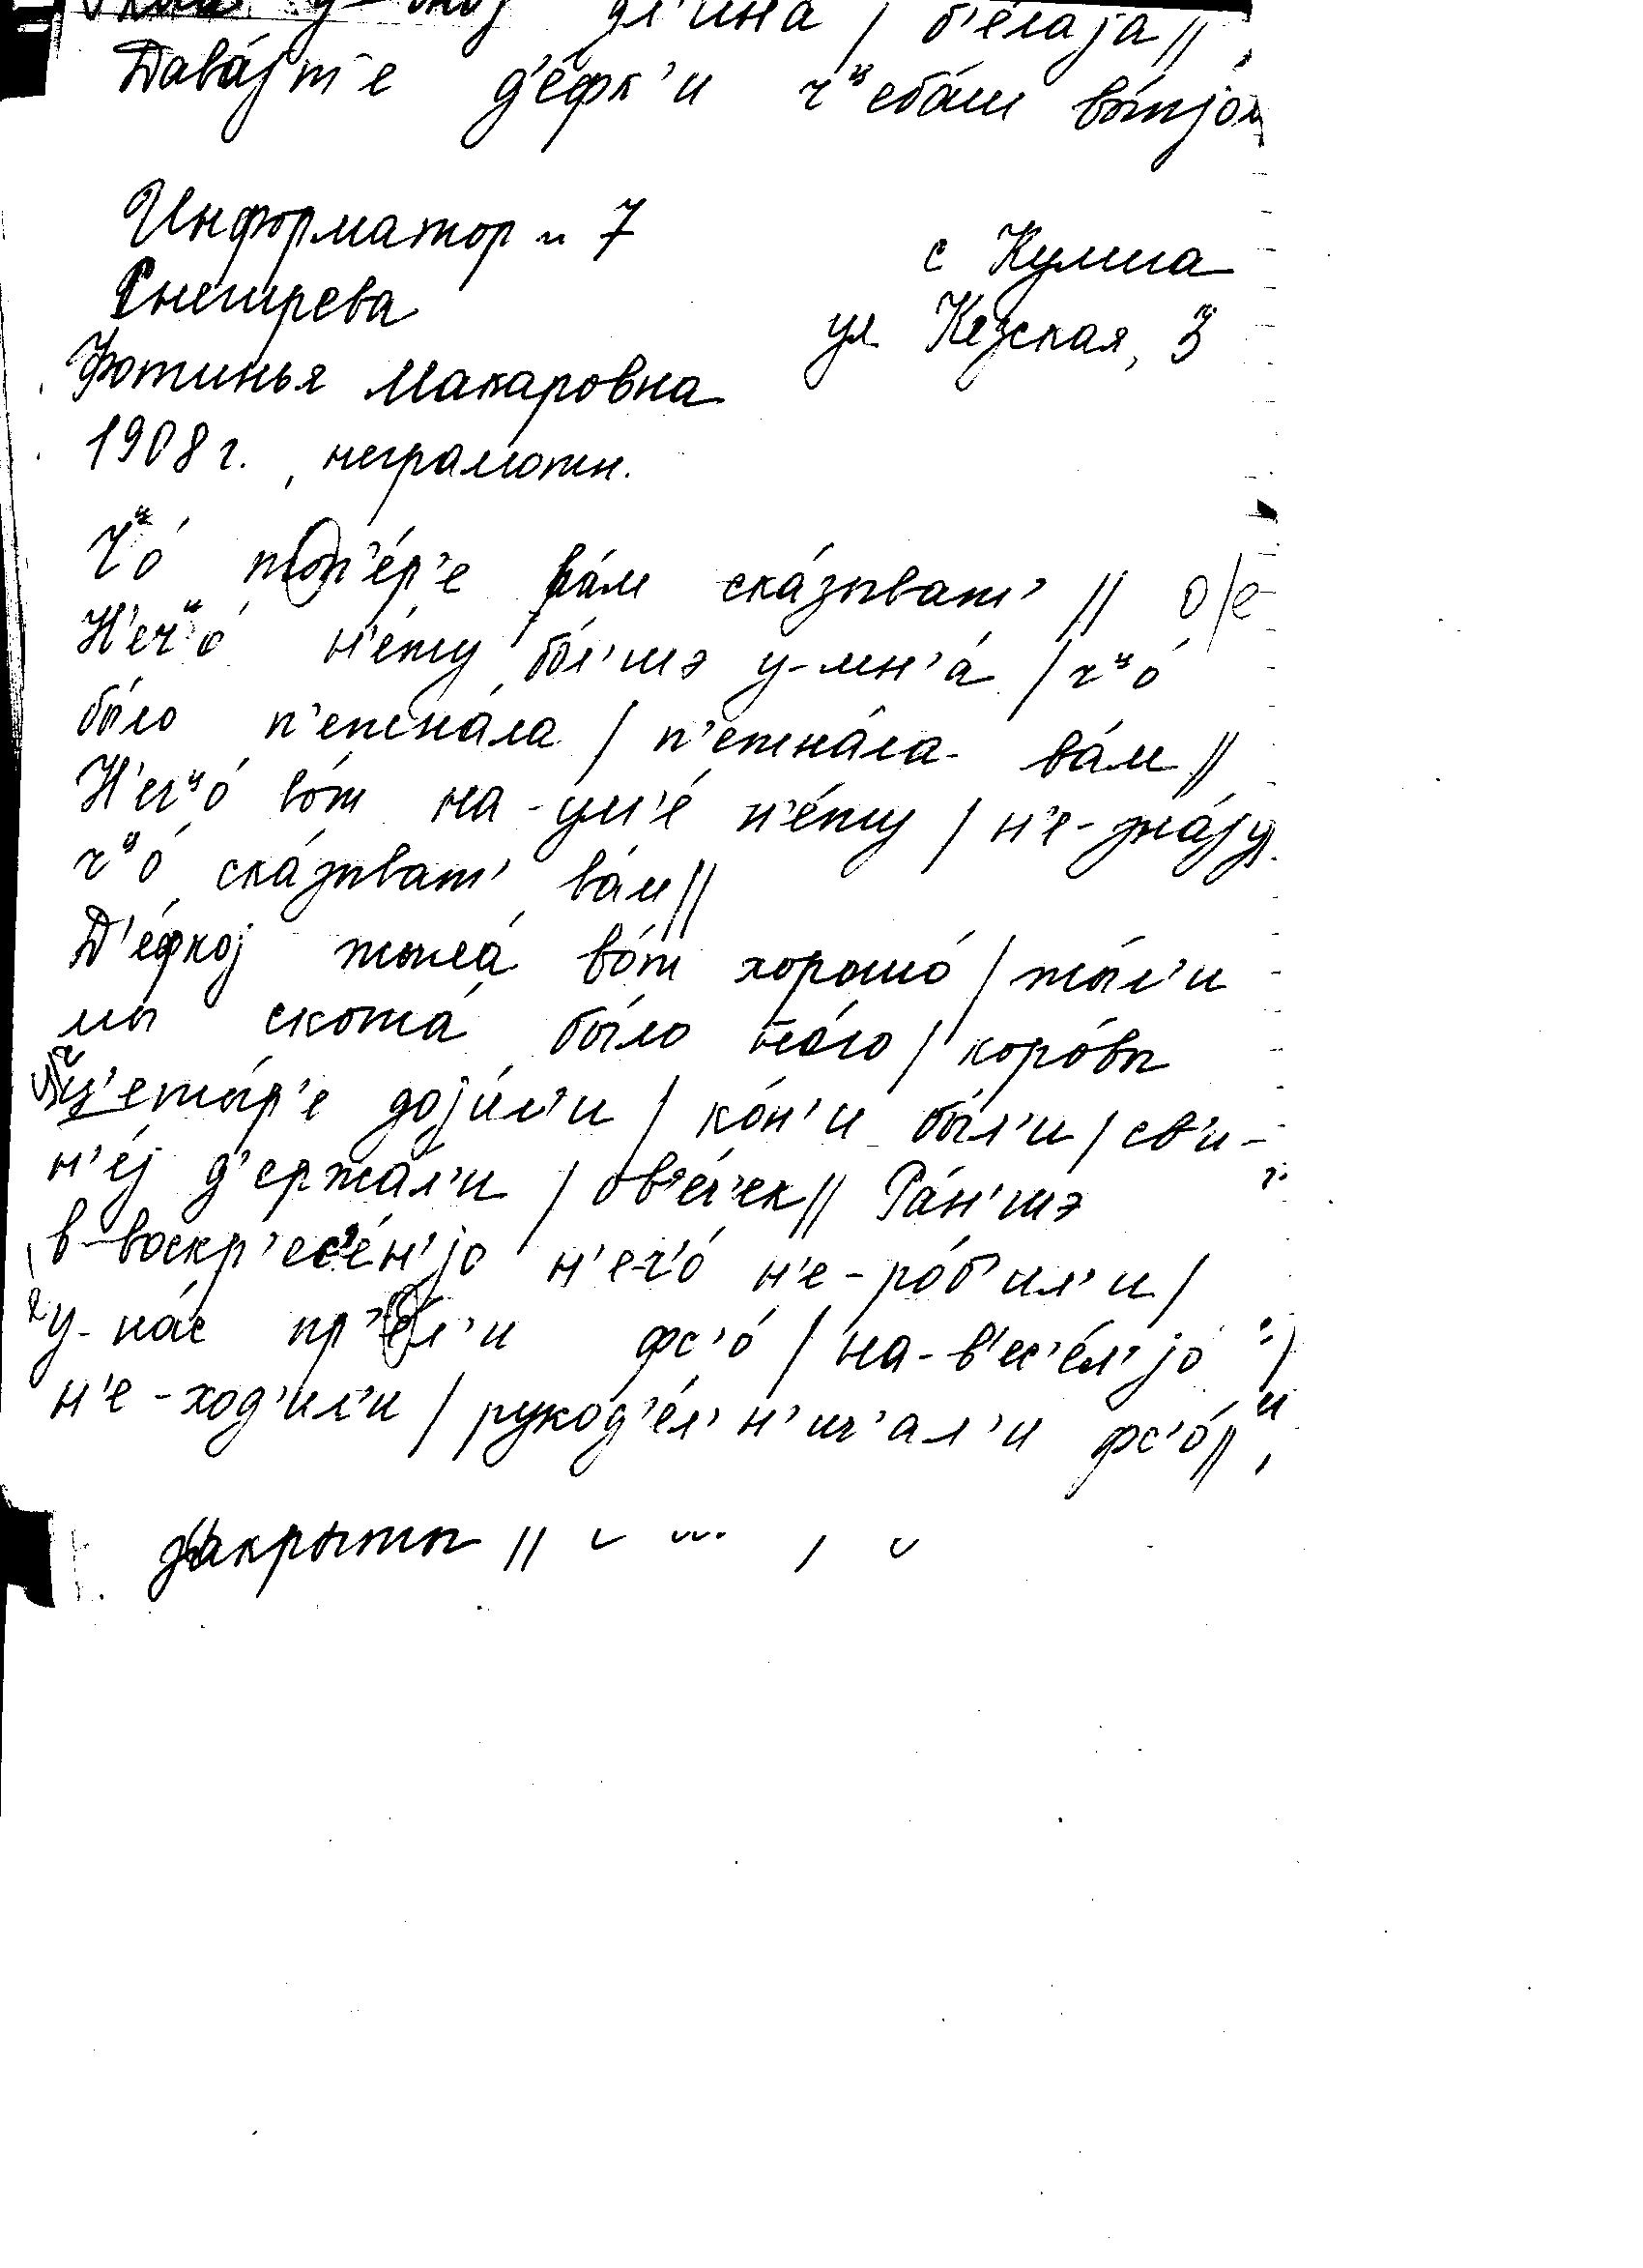 д'ина / б'е́лаја //
Дава́јт'е д'е́фк'и чᵘеба́ш вы́пјом
Информатор n 7
с Кулига
Снегирева
ул Кезская, 3
Фотинья Макаровна
1908 г., неграмотн.
Чᵘо́ топ'е́р'е ва́м ска́зыват' // о/е
Н'ечᵘо́ н'е́ту бо́л'шэ у-мн'а́ / чᵘо́
бы́ло п'етна́ла / п'етна́ла ва́м //
Н'ечᵘо́ во́т на-ум'е́ н'е́ту / н'е-зна́ју
чᵘо́ ска́зыват' ва́м //
Д'е́фкој жыла́ во́т хорошо́ / жы́л'и
мы скота́ бы́ло мно́го / коро́вы
ц'еты́р'е доји́л'и / ко́н'и бы́л'и / св'и-
н'е́ј д'ержа́л'и / ов'е́ч'ек // Ра́н'шэ
в-воскр'ес'е́н'јо н'еч'о́ н'е-ро́б'ил'и /
у-на́с пр'а́л'и фс'о́ / на-в'ес'е́л'јо /
н'е-ход'ил'и / рукод'е́л'н'ич'ал'и фс'о́ //
закрыты //